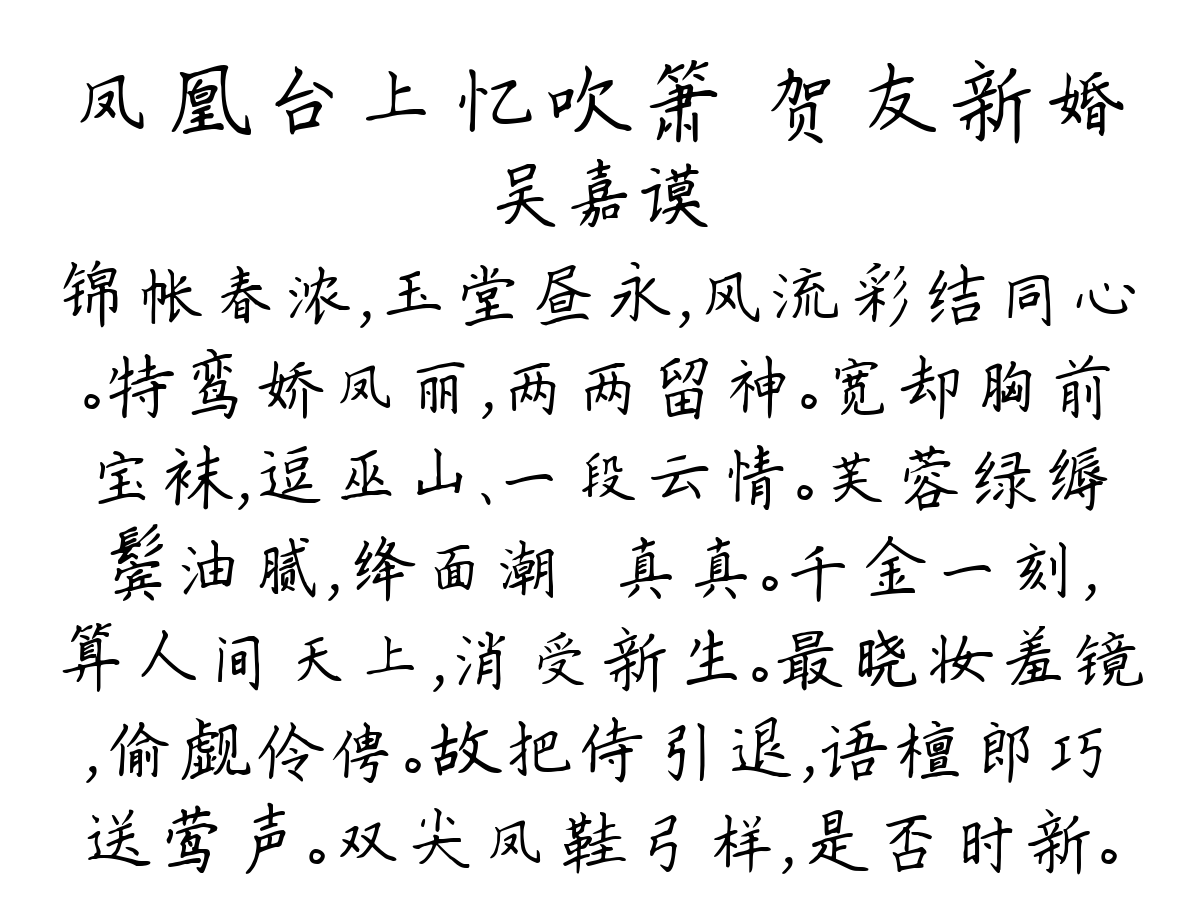 凤凰台上忆吹箫 贺友新婚
吴嘉谟
锦帐春浓,玉堂昼永,风流彩结同心
。特鸾娇凤丽,两两留神。宽却胸前
宝袜,逗巫山、一段云情。芙蓉绿缛
鬓油腻,绛面潮 真真。千金一刻,
算人间天上,消受新生。最晓妆羞镜
,偷觑伶俜。故把侍引退,语檀郎巧
送莺声。双尖凤鞋弓样,是否时新。